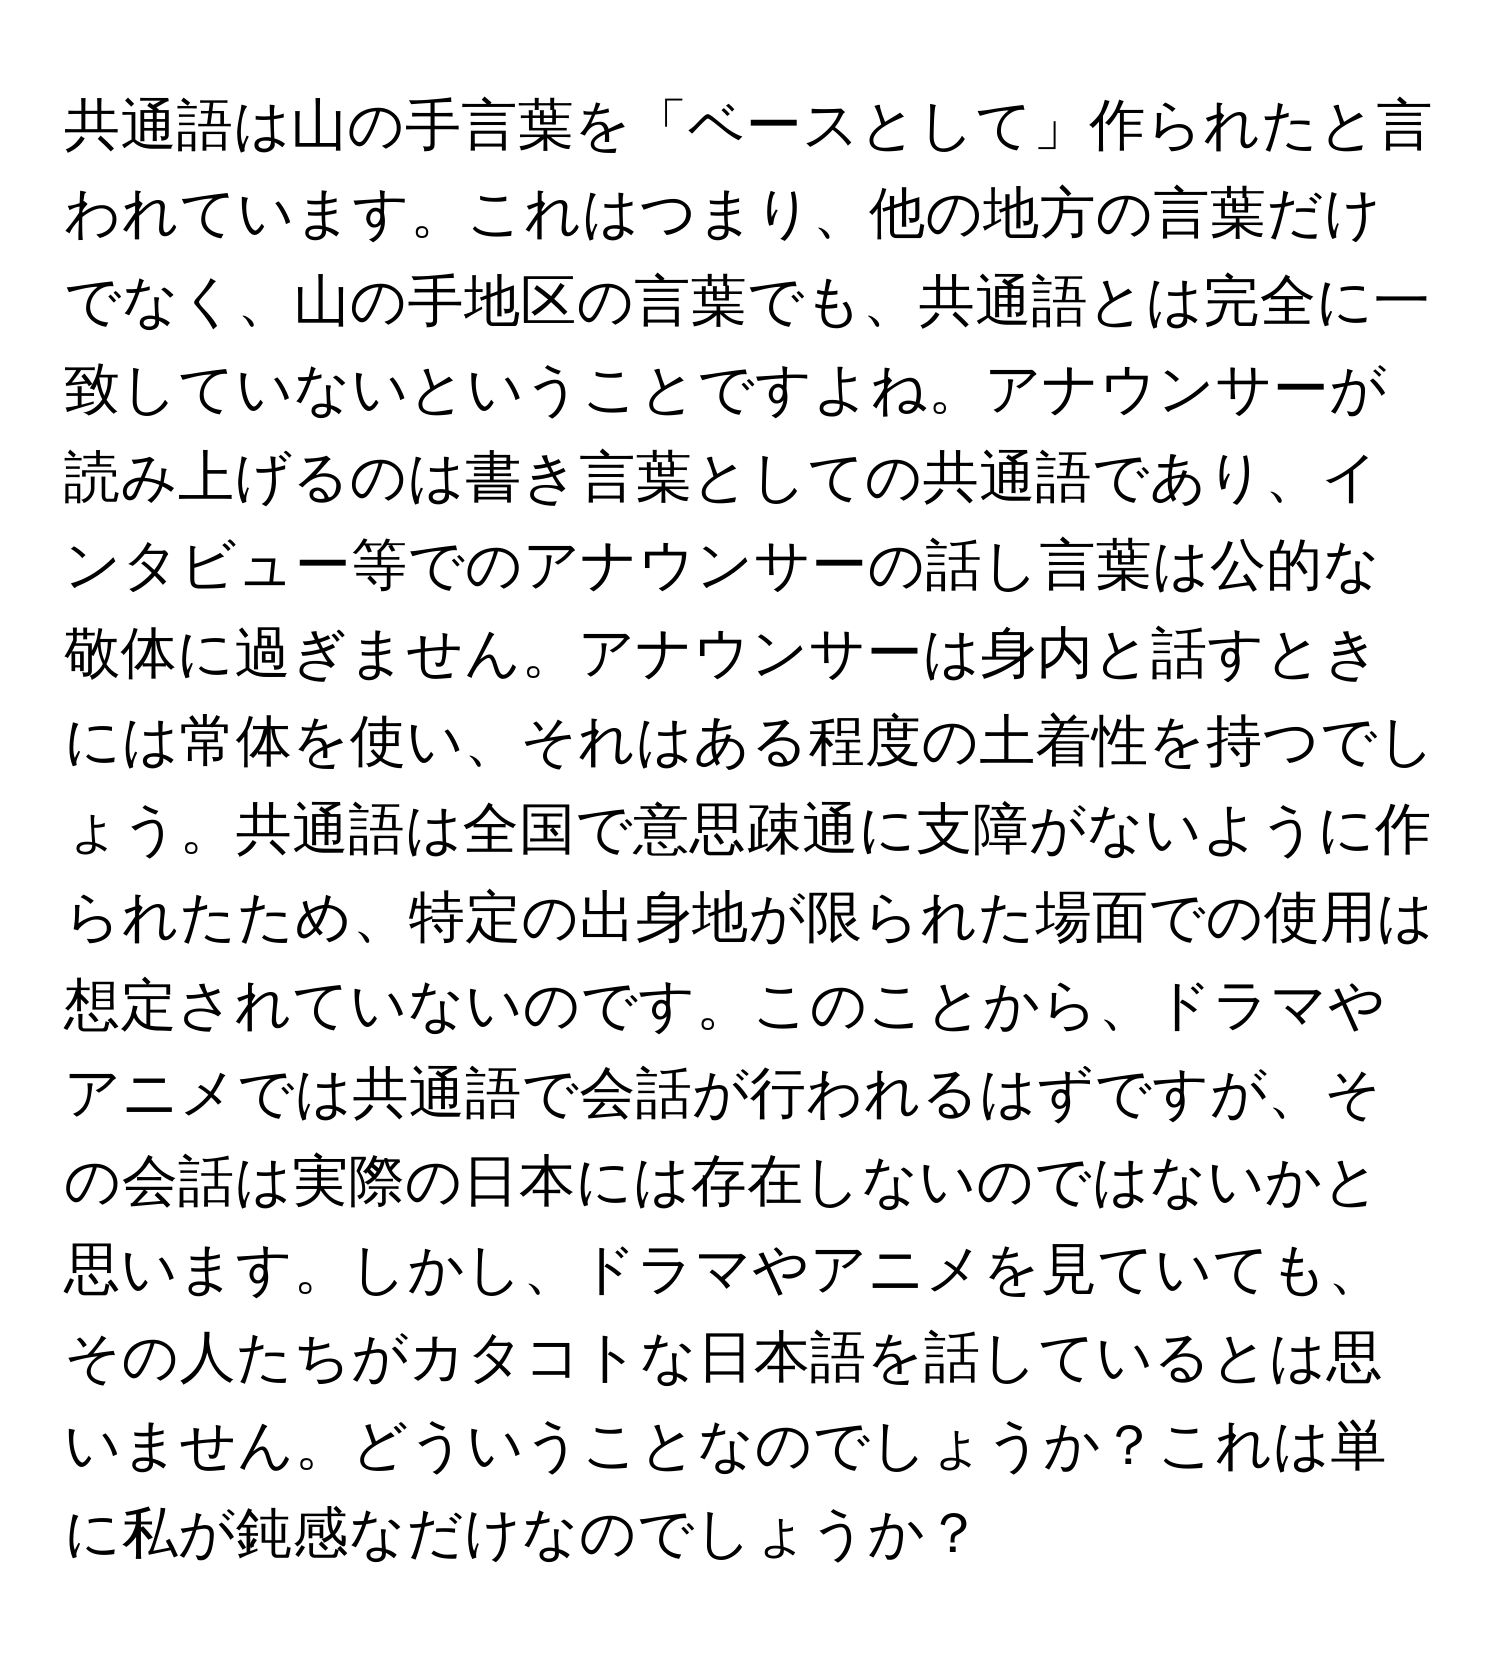 共通語は山の手言葉を「ベースとして」作られたと言
われています。これはつまり、他の地方の言葉だけ
でなく、山の手地区の言葉でも、共通語とは完全に一
致していないということですよね。アナウンサーが
読み上げるのは書き言葉としての共通語であり、イ
ンタビュー等でのアナウンサーの話し言葉は公的な
敬体に過ぎません。アナウンサーは身内と話すとき
には常体を使い、それはある程度の土着性を持つでし
ょう。共通語は全国で意思疎通に支障がないように作
られたため、特定の出身地が限られた場面での使用は
想定されていないのです。このことから、ドラマや
アニメでは共通語で会話が行われるはずですが、そ
の会話は実際の日本には存在しないのではないかと
思います。しかし、ドラマやアニメを見ていても、
その人たちがカタコトな日本語を話しているとは思
いません。どういうことなのでしょうか？これは単
に私が鈍感なだけなのでしょうか？